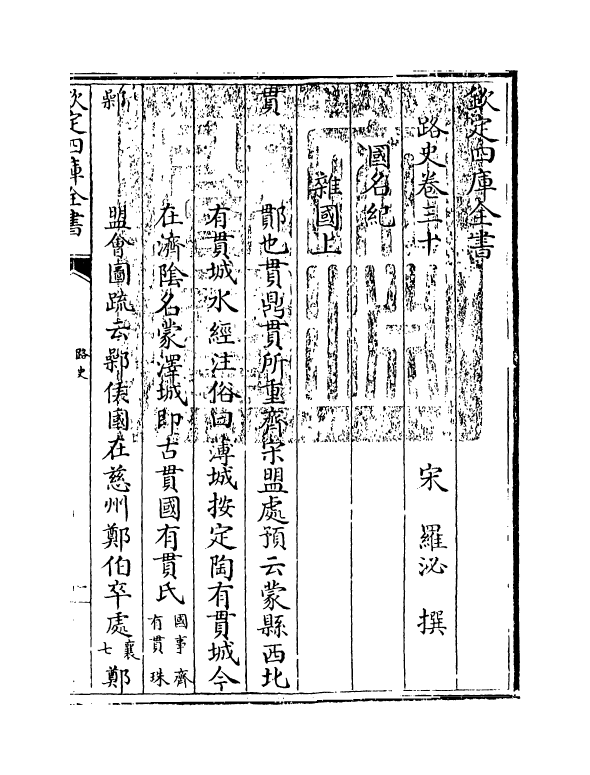 欽定四庫全書
路史卷三十
宋 羅泌 撰
國名紀
雜國上
貫
鄮也貫鼎貫所重齊宋盟處預云蒙縣西北
有貫城水經注俗曰薄城按定陶有貫城今
在濟陰名蒙澤城即古貫國有貫氏國事齊有貫珠
鄵
盟會圖疏云鄵侯國在慈州鄭伯卒處襄七鄭
欽定四庫全書
路史